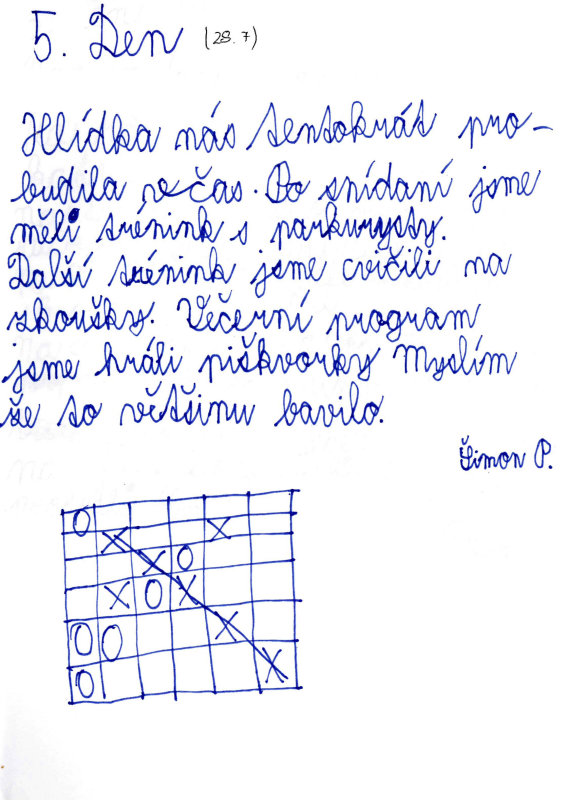 5. Den (28.7)
Hlídka nás tentokrát pro-
budila včas. Po snídaní jsme
měli trénink s parkurysty.
Další trénink jsme cvičili na
zkoušky. Večerní program
jsme hráli piškvorky Myslím
že to většinu bavilo.
Šimon P.
O
X X
X O
X O X
O O X
O X